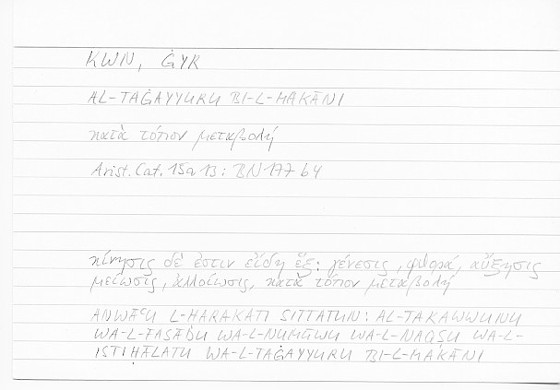 KWN, ĠYR
AL-TAĠAYYURU BI-L-MAKĀNI
κατὰ τόπον μεταβολή
Arist. Cat. 15a 13: BN 177 b4
κίνησις δέ ἐστιν εἴδη ἕξ: γένεσις, φθορά, αὔξησις
μείωσις, ἀλλοίωσις, κατὰ τόπον μεταβολή
ANWĀʿU L-ḤARAKATI SITTATUN: AL-TAKAWWUNU
WA-L-FASĀDU WA-L-NUMŪWU WA-L-NAQṢU WA-L-
ISTIḤĀLATU WA-L-TAĠAYYURU BI-L-MAKĀNI